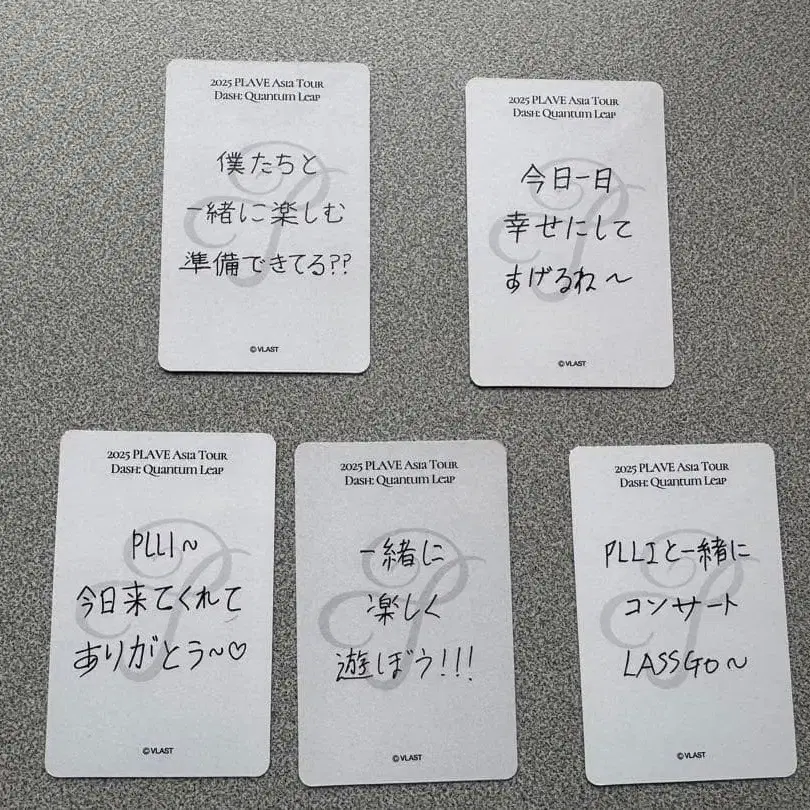 2025 PLAVE ASIA TOUR
DASH: QUANTUM LEAP
僕たちと
一緒に楽しむ
準備できてる??
© VLAST
2025 PLAVE ASIA TOUR
DASH: QUANTUM LEAP
今日一日
幸せにして
あげるね〜
© VLAST
2025 PLAVE ASIA TOUR
DASH: QUANTUM LEAP
PLLI〜
今日来てくれて
ありがとう〜♡
© VLAST
2025 PLAVE ASIA TOUR
DASH: QUANTUM LEAP
一緒に
楽しく
遊ぼう!!!
© VLAST
2025 PLAVE ASIA TOUR
DASH: QUANTUM LEAP
PLLIと一緒に
コンサート
LASSGO〜
© VLAST